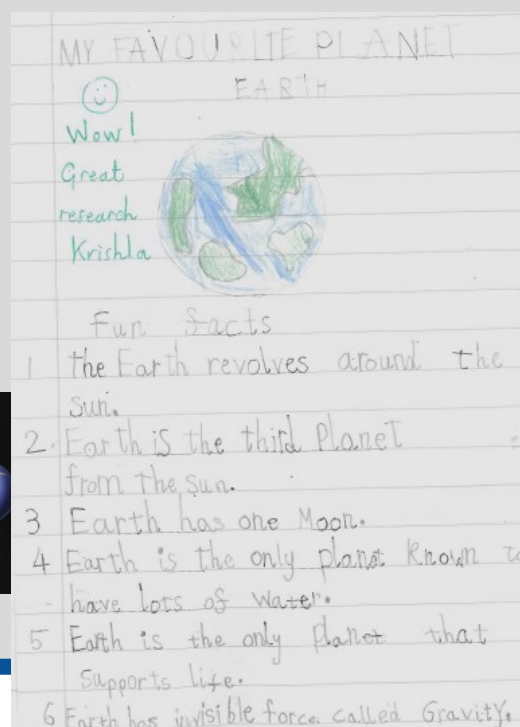 MY FAVOURITE PLANET
EARTH
Wow!
Great
research
Krishla
Fun facts
1 the Earth revolves around the
Sun.
2. Earth is the third Planet
from the Sun.
3 Earth has one Moon.
4 Earth is the only planet known to
have lots of water.
5 Earth is the only Planet that
Supports life.
6 Earth has invisible force called Gravity.